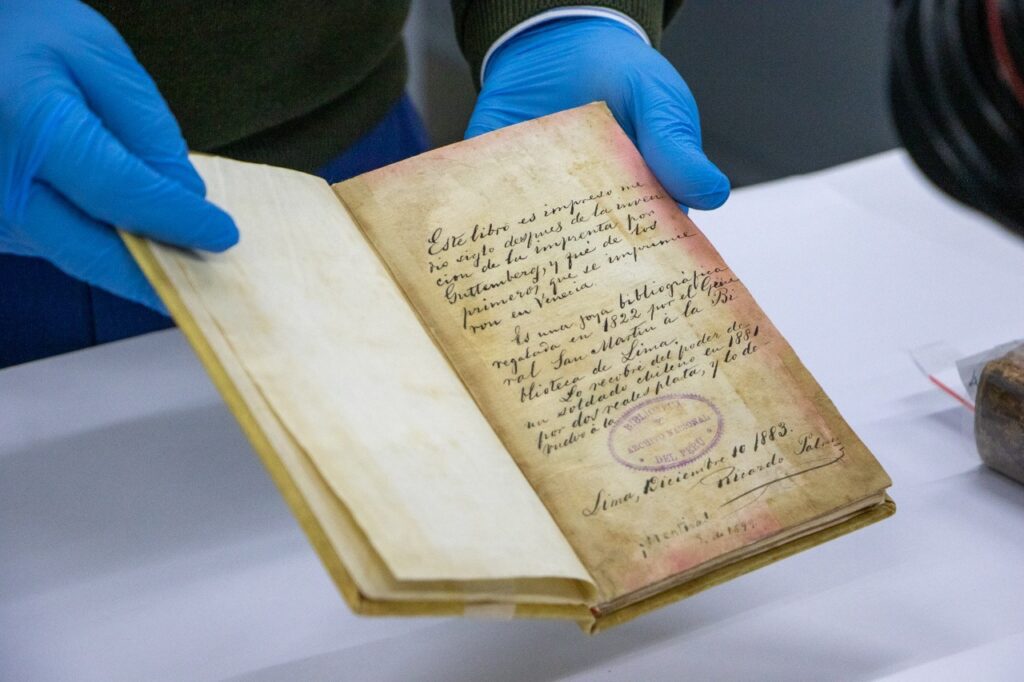 Este libro es impreso me
dio siglo despues de la inven
cion de la imprenta por
Guttemberg, y fué de los
primeros que se imprimie
ron en Venecia.
Es una joya bibliográfica
regalada en 1822 por el Gene
ral San Martin à la Bi
blioteca de Lima.
Lo recobré del poder de
un soldado chileno en 1881
por dos reales plata, y lo de
vuelvo à la
BIBLIOTECA
Y
ARCHIVO NACIONAL
DEL PERU
Lima, Diciembre 10 1883.
Ricardo Palma
¡Mentira!